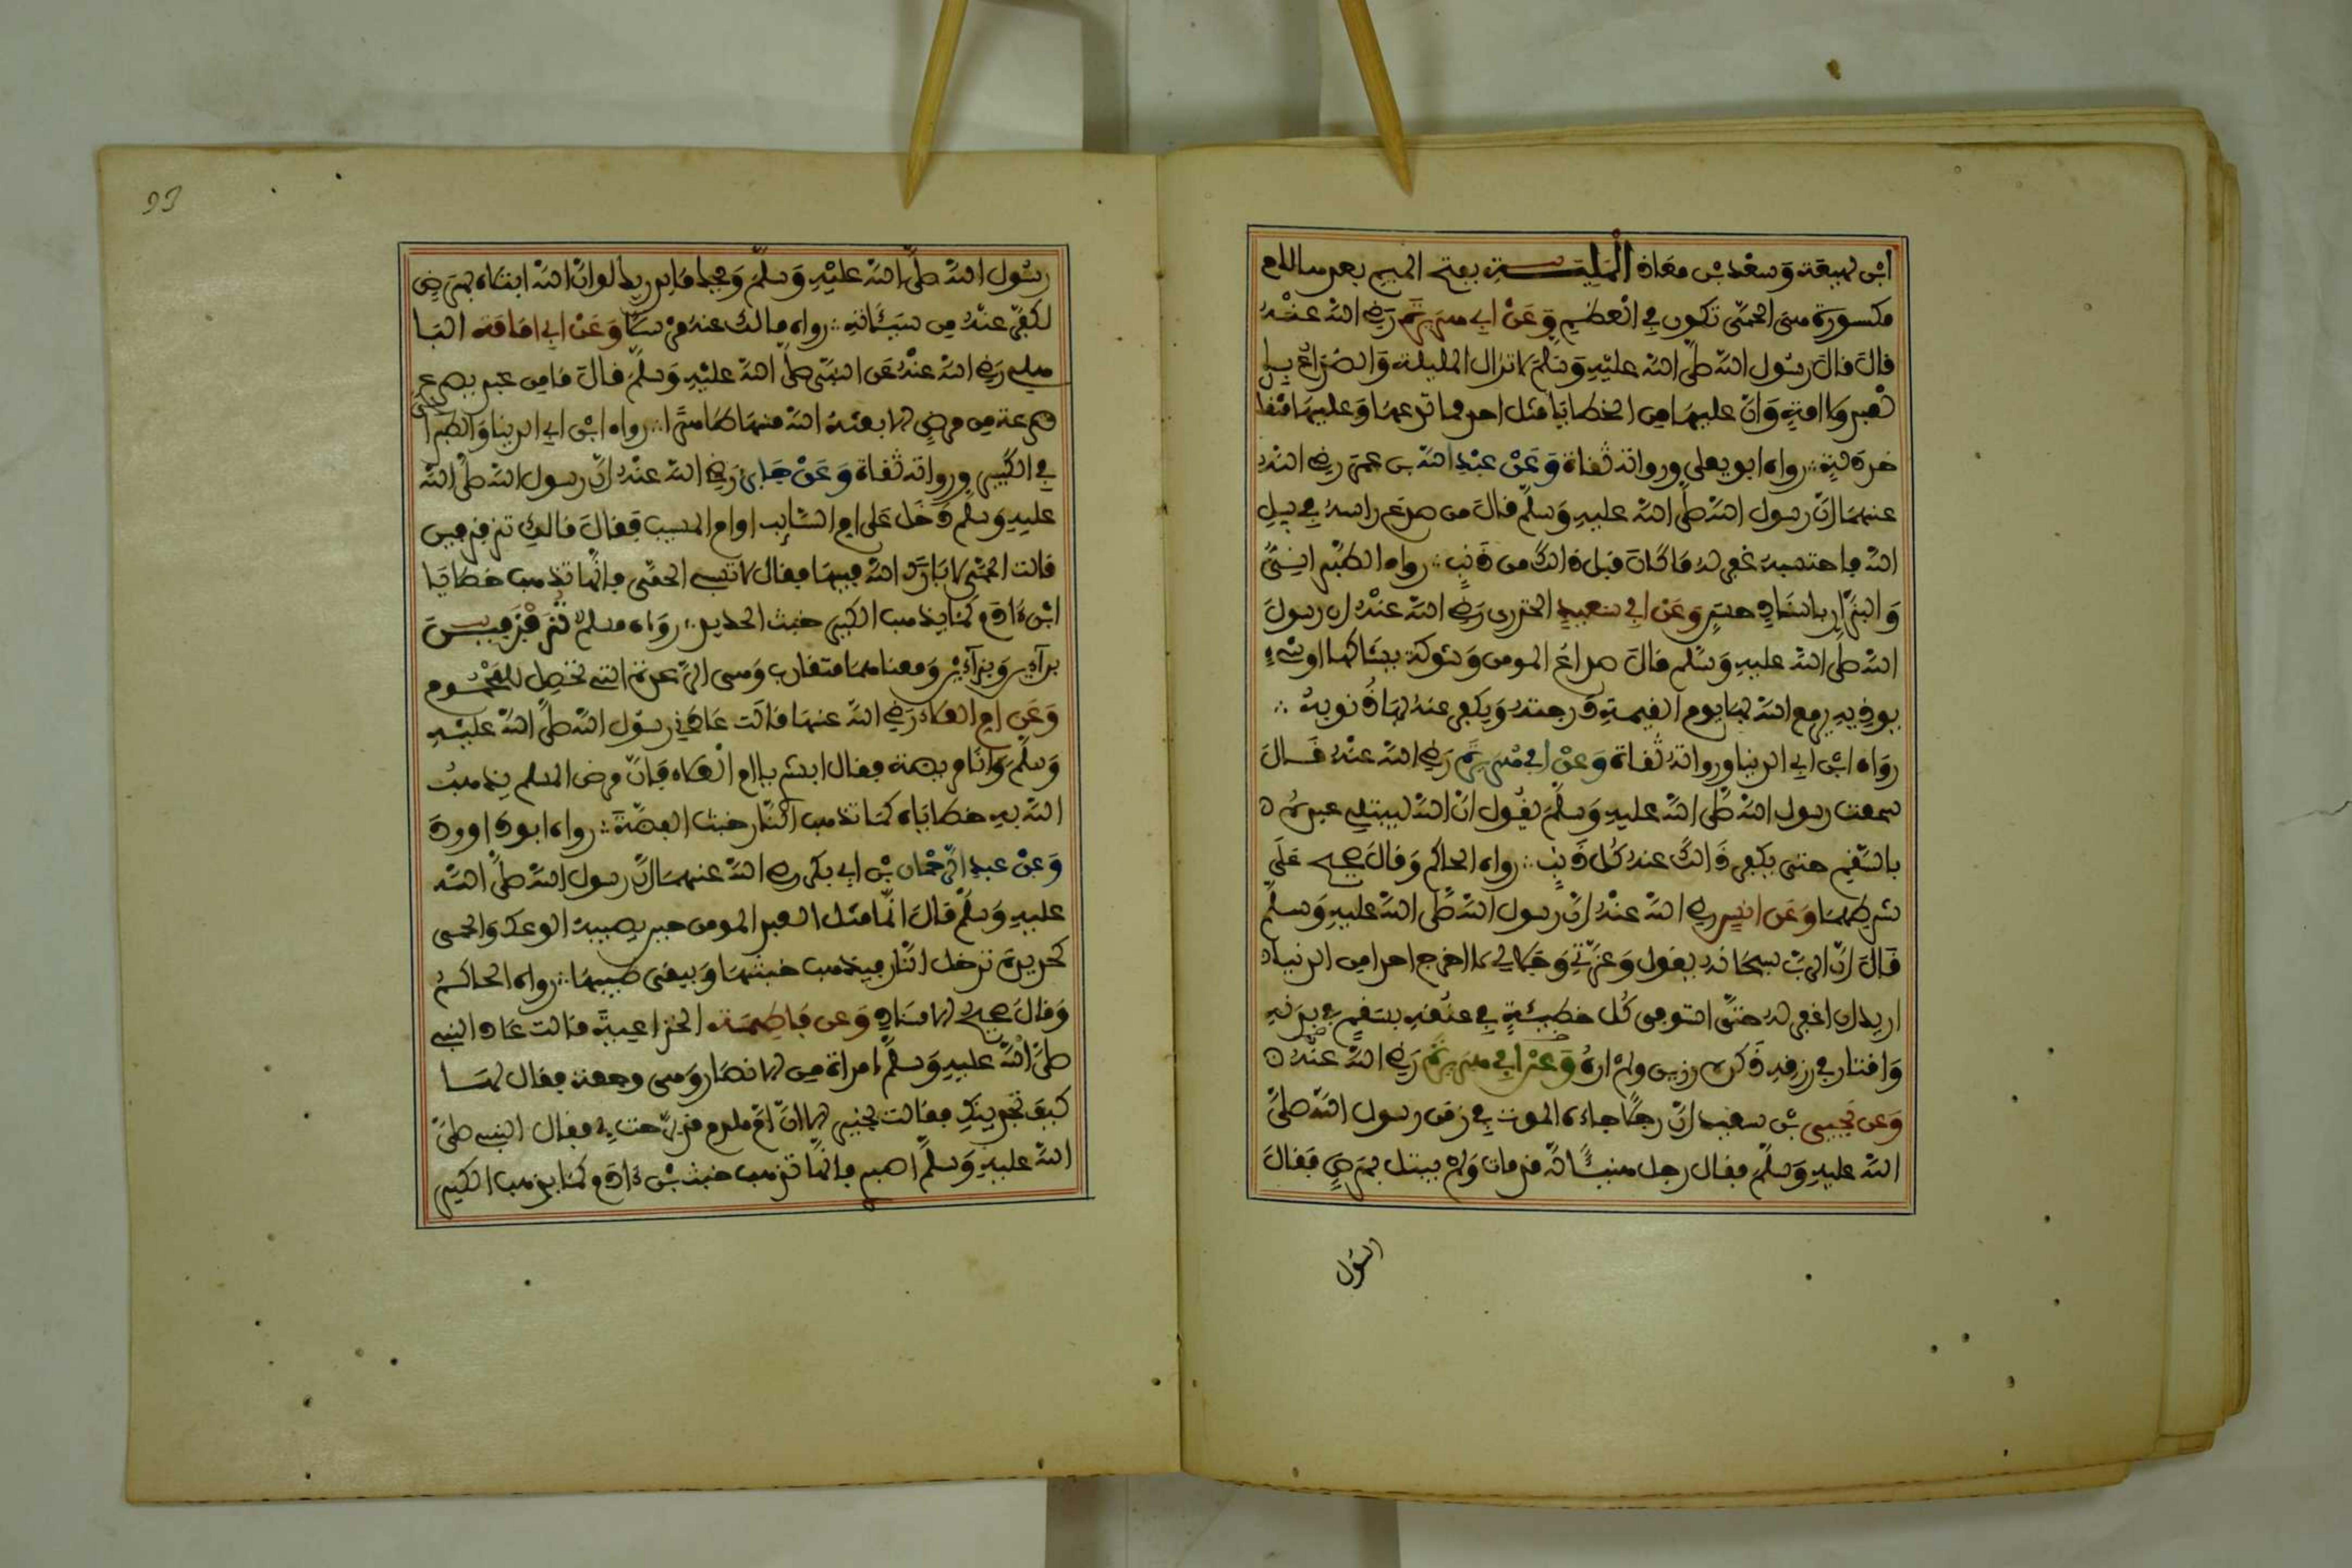 ابن لهيعة وسعد بن معاذ المليلة بفتح الميم بعدها لام
مكسورة هي الحمى تكون في العظم وعن ابي هريرة رضي الله عنه
قال قال رسول الله صلى الله عليه وسلم لا تزال المليلة والصداع
بالعبد والامة وان عليهما من الخطايا مثل احد فما تدعهما وعليهما مثقال
خردلة رواه ابو يعلى ورواته ثقاة وعن عبد الله بن عمر رضي الله
عنهما ان رسول الله صلى الله عليه وسلم قال من صدع راسه في سبيل
الله فاحتسبه غفر له ما كان قبل ذالك من ذنب رواه الطبراني
والبزار باسناد حسن وعن ابي سعيد الخدري رضي الله عنه ان رسول
الله صلى الله عليه وسلم قال صداع المومن وشوكة يشاكها او شيء
يوذيه يرفع الله بها يوم القيمة درجته ويكفر عنه بها ذنوبه
رواه ابن ابي الدنيا ورواته ثقاة وعن ابي هريرة رضي الله عنه قال
سمعت رسول الله صلى الله عليه وسلم يقول ان الله ليبتلي عبده
بالسقم حتى يكفر ذالك عنه كل ذنب رواه الحاكم وقال صحيح على
شرطهما وعن انس رضي الله عنه ان رسول الله صلى الله عليه وسلم
قال ان الرب سبحانه يقول وعزتي وجلالي لا اخرج احدا من الدنيا
اريد ان اغفر له حتى استوفي كل خطيئة في عنقه بسقم في بدنه
واقتار في رزقه ذكره رزين ولم اره وعن ابي هريرة رضي الله عنه
وعن يحيى بن سعيد ان رجلا جاءه الموت في زمن رسول الله صلى
الله عليه وسلم فقال رجل هنيئا له مات ولم يبتل بمرض فقال
رسول
93
رسول الله صلى الله عليه وسلم ويحك ما يدريك لو ان الله ابتلاه بمرض
لكفر عنه من سيئاته رواه مالك عنه مرسلا وعن ابي امامة البا
هلي رضي الله عنه عن النبي صلى الله عليه وسلم قال ما من عبد يصرع
صرعة من مرض الا بعثه الله منها طاهرا رواه ابن ابي الدنيا والطبراني
في الكبير ورواته ثقاة وعن جابر رضي الله عنه ان رسول الله صلى الله
عليه وسلم دخل على ام السايب او ام المسيب فقال مالك تزفزفين
قالت الحمى لا بارك الله فيها فقال لا تسبي الحمى فانها تذهب خطايا
ابن ءادم كما يذهب الكير خبث الحديد رواه مسلم تزفزفين
براءين وبزاءين ومعناهما متقارب وهي الرعدة التي تحصل للمحموم
وعن ام العلاء رضي الله عنها قالت عادني رسول الله صلى الله عليه
وسلم وانا مريضة فقال ابشري يا ام العلاء فان مرض المسلم يذهب
الله به خطاياه كما تذهب النار خبث الفضة رواه ابو داوود
وعن عبد الرحمان بن ابي بكر رضي الله عنهما ان رسول الله صلى الله
عليه وسلم قال انما مثل العبد المومن حين يصيبه الوعك والحمى
كحديدة تدخل النار فيذهب خبثها ويبقى طيبها رواه الحاكم
وقال صحيح الاسناد وعن فاطمة الخزاعية قالت عاد النبي
صلى الله عليه وسلم امراة من الانصار وهي وجعة فقال لها
كيف تجدينك فقالت بخير الا ان ام ملدم قد برحت بي فقال النبي صلى
الله عليه وسلم اصبري فانها تذهب خبث بن ءادم كما يذهب الكير